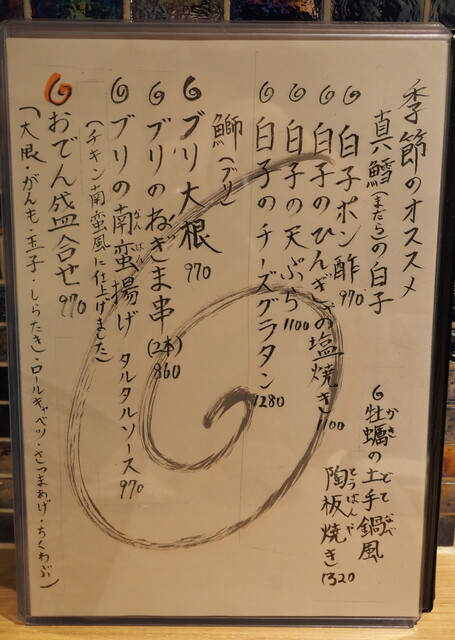 季節のオススメ
真鱈(まだら)の白子
白子ポン酢 970
白子のひんぎゃの塩焼き 1100
白子の天ぷら 1100
白子のチーズグラタン 1280
牡蠣の土手鍋風
かき どて なべ
陶板焼き 1320
とうばんや
鰤(ブリ)
ブリ大根 970
ブリのねぎま串(2本) 860
ブリの南蛮揚げ タルタルソース 970
なんばん
(チキン南蛮風に仕上げました)
おでん盛合せ 970
(大根・がんも・玉子・しらたき・ロールキャベツ・さつまあげ・ちくわぶ)